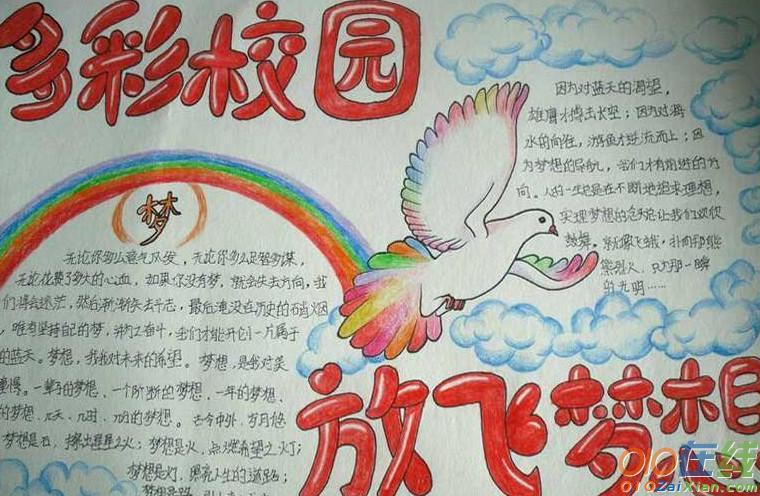 多彩校园
因为对蓝天的渴望，
雄鹰才搏击长空；因为对海
水的向往，游鱼才逆流而上；因
为梦想的导航，我们才有前进的方
向。人的一生总是在不断地追求理想，
实现梦想的念头让我们欢欣
鼓舞。就像飞蛾，扑向那熊
熊烈火，只为那一瞬
的光明……
梦
无论你多么意气风发，无论你多么足智多谋，
无论花费了多大的心血，如果你没有梦，就会失去方向，我
们将会迷茫，然后渐渐失去斗志，最后淹没在历史的硝烟
，唯有坚持自己的梦，并为之奋斗，我们才能开创一片属于
的蓝天。梦想，我们对未来的希望。梦想，是我对美
憧憬。一辈子的梦想、一个阶段的梦想、一年的梦想、
的梦想，古今中外，岁月悠
梦想是石，擦出星星之火；梦想是火，点燃希望之灯；
梦想是灯，照亮人生的道路；
梦想是路
放飞梦想
010在线
010ZaiXian.com